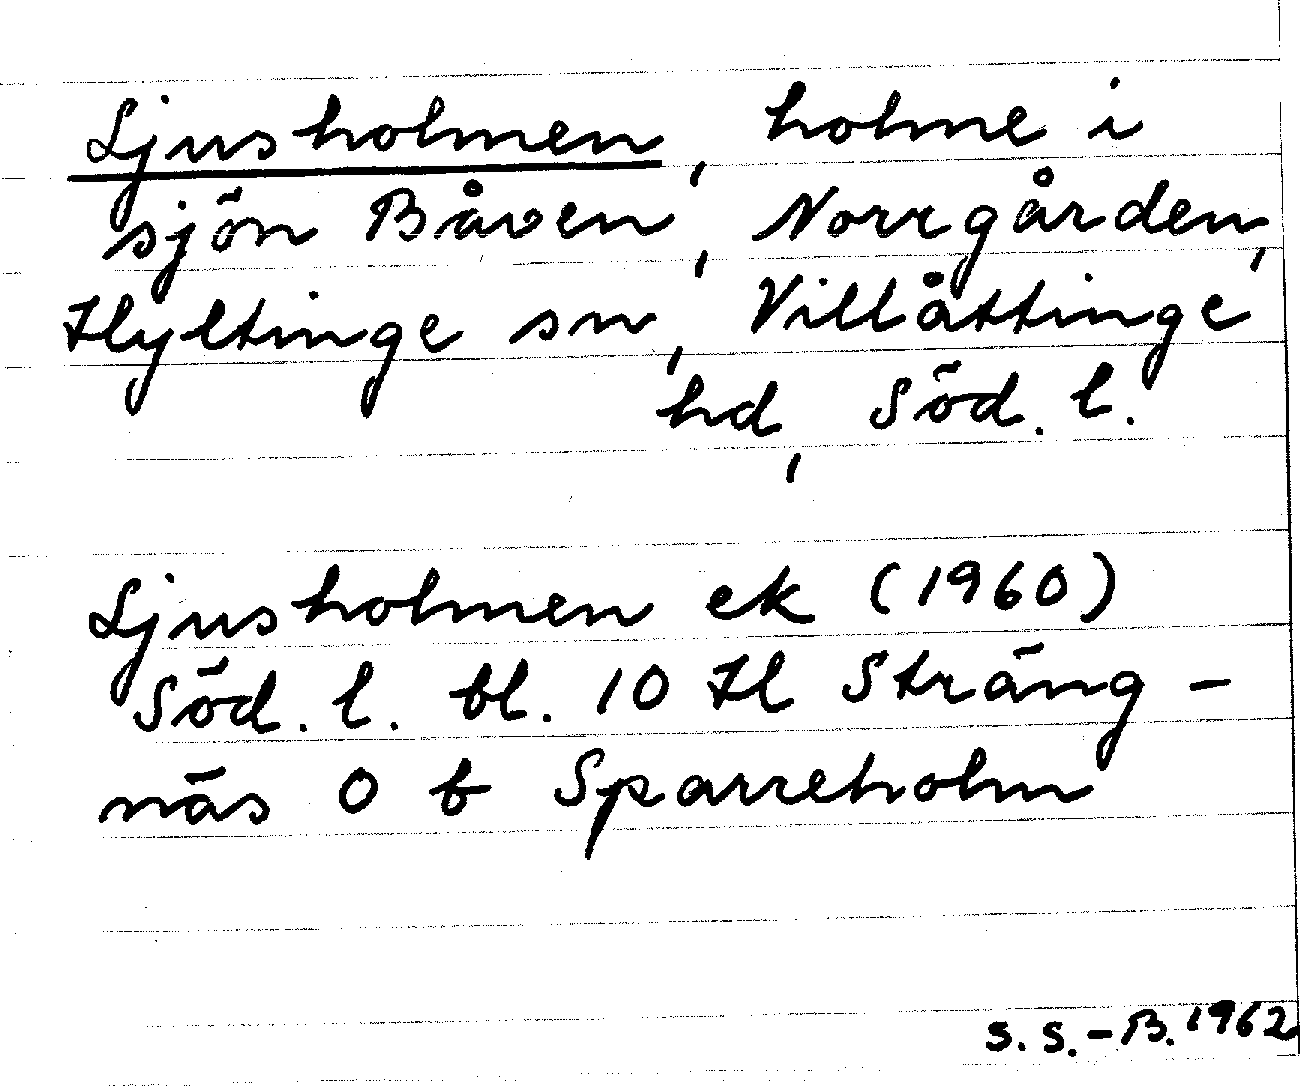 Ljusholmen, holme i
sjön Båven, Norrgården,
Hyltinge sn, Villåttinge
hd, Söd. l.
Ljusholmen ek (1960)
Söd. l. bl. 10 Hl Sträng-
näs O b Sparreholm
S. S.-B. 1962